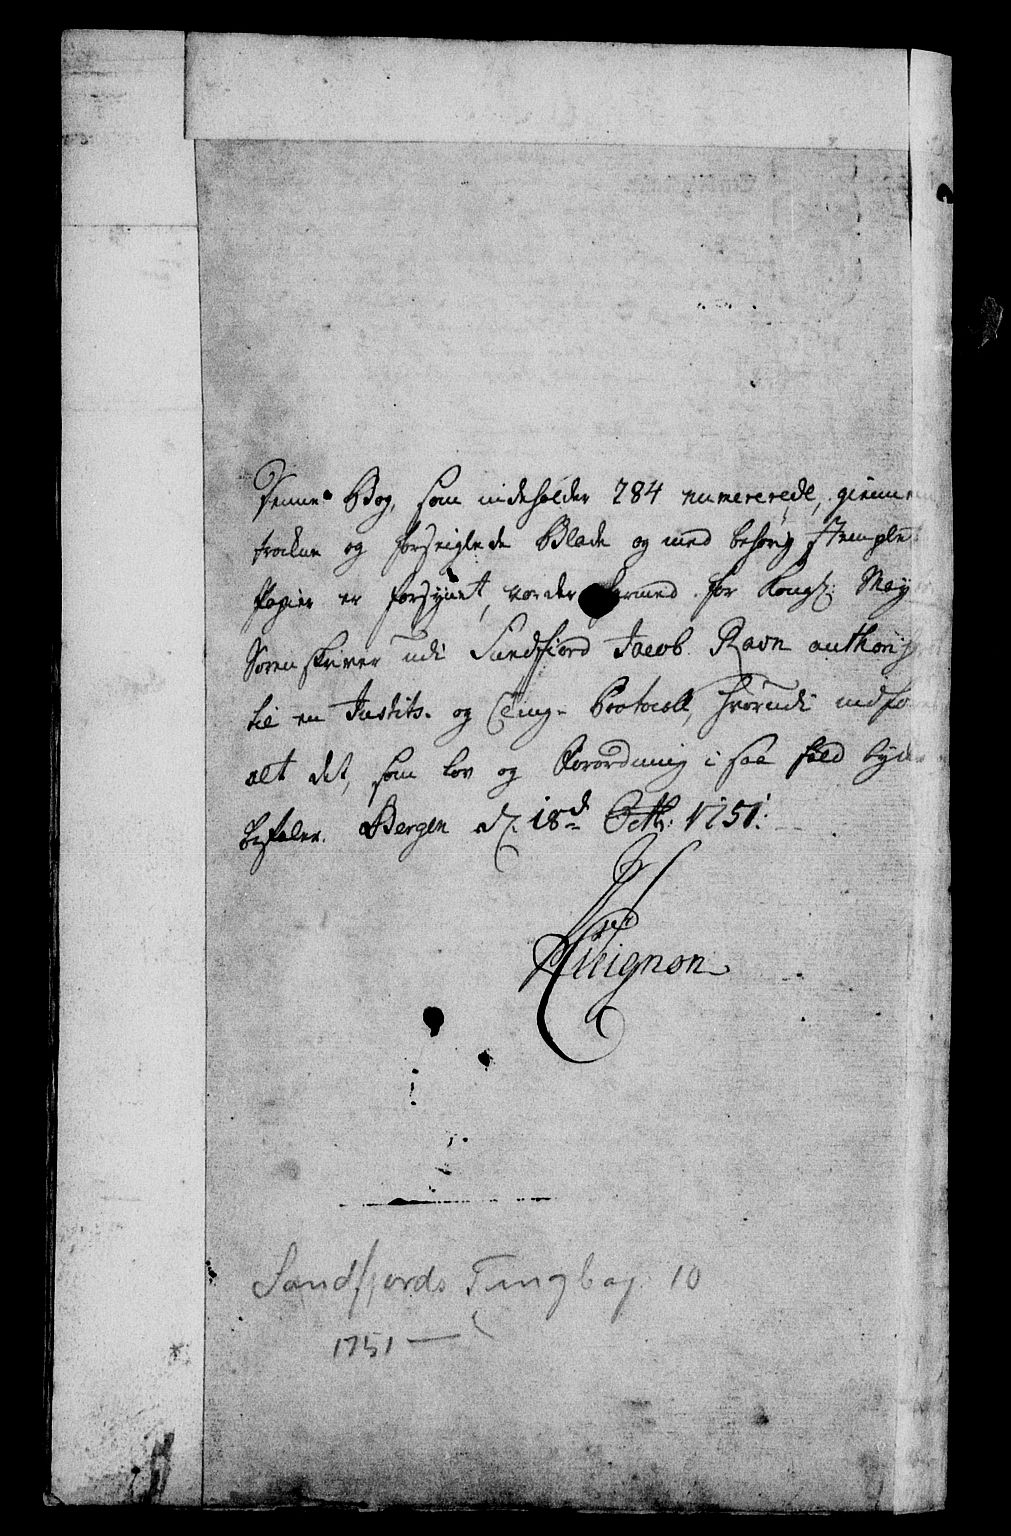 Denne Bog, som indeholder 284 numererede, giennem
trokne og forseiglede Blade og med behørig stemplet
Papier er forsynet, vorder hermed for Kongl: May
Sorenskriver udi Sundfiord Jacob Ravn authori
til en Justits- og Ting- Protocoll, hvorudi indfø
alt det, som Lov og Forordning i saa fald
befaler. Bergen d. 18de Octb: 1751.
Cicignon
Søndfjords Tingbog 10
1751 —